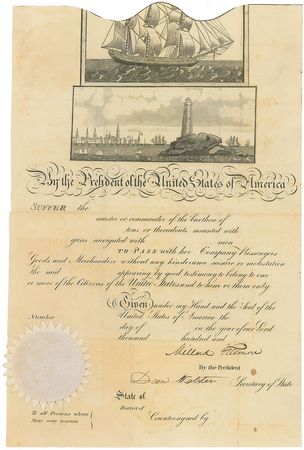 By the President of the United States of America
SUFFER the
master or commander of the burthen of
tons or thereabouts mounted with
guns navigated with men
TO PASS with her Company Passengers
Goods and Merchandize without any hinderance seisure or molestation
the said appearing by good testimony to belong to one
or more of the Citizens of the United States and to him or them only
Given under my Hand and the Seal of the
United States of America the
day of in the year of our Lord
thousand hundred and
Number
Millard Fillmore
By the President
Danl Webster Secretary of State
State of
District of
Countersigned by
To all Persons whom
these may concern